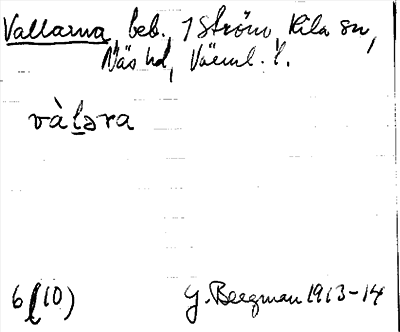 Vallarna, beb., 1 Ström, Kila sn,
Näs hd, Värml. l.
vàḻəra
6 l (10)
G. Bergman 1913-14